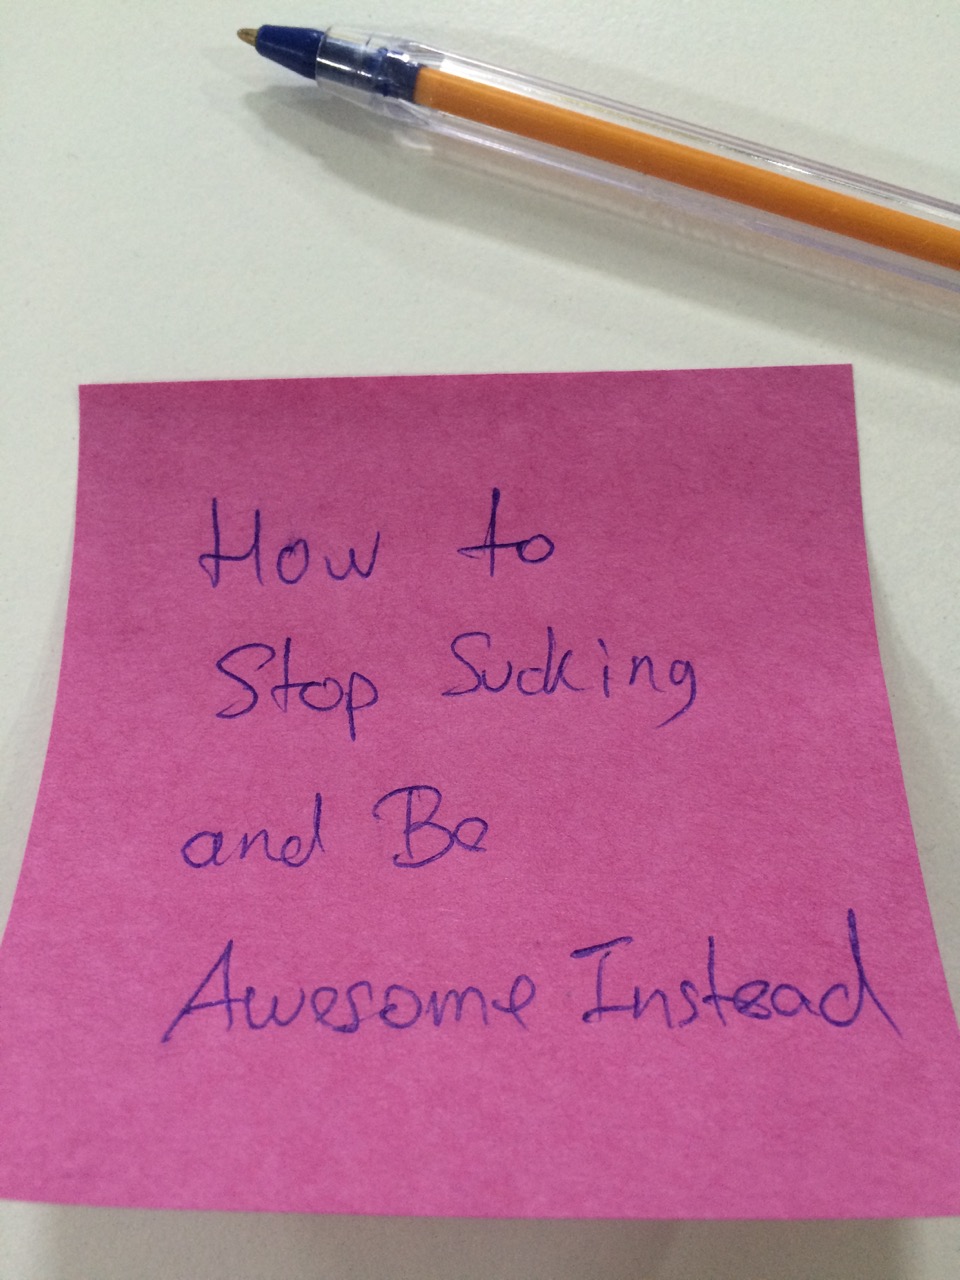 How to
Stop Sucking
and Be
Awesome Instead